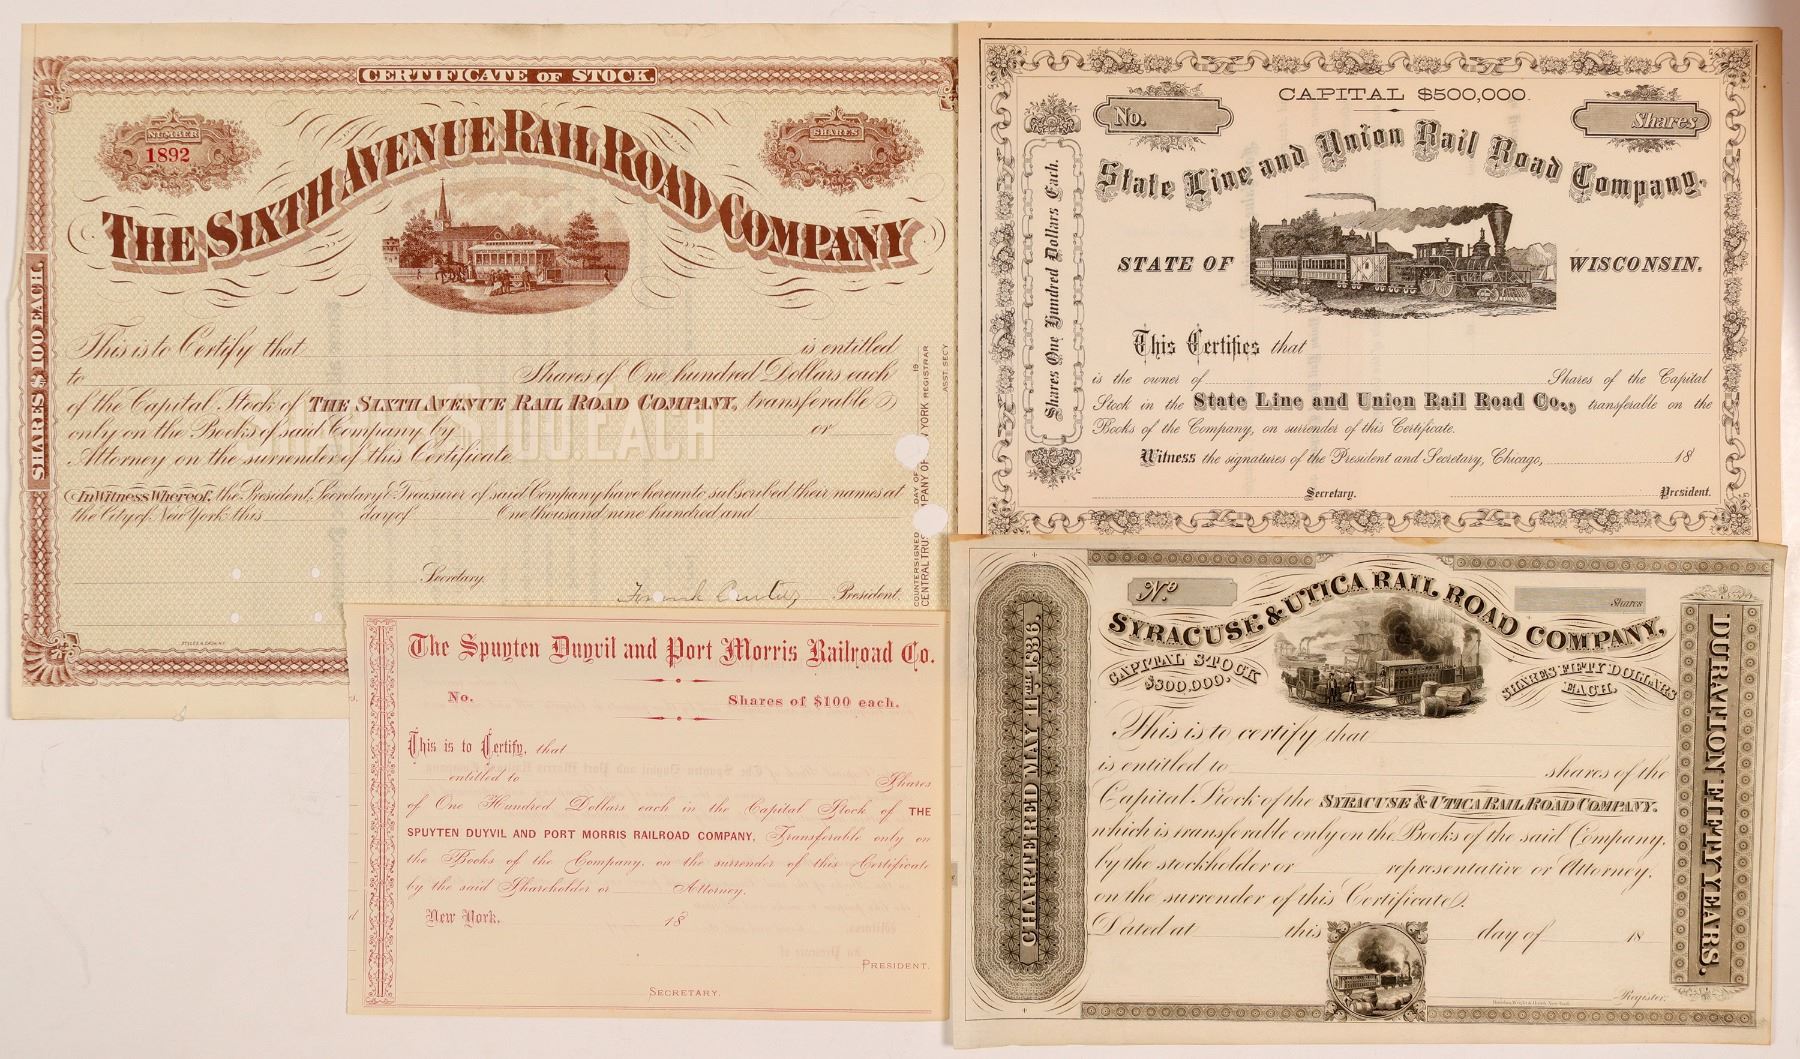 CERTIFICATE OF STOCK.
NUMBER
1892
SHARES
THE SIXTH AVENUE RAIL ROAD COMPANY
SHARES $100 EACH
This is to Certify that is entitled
to Shares of One hundred Dollars each
of the Capital Stock of THE SIXTH AVENUE RAIL ROAD COMPANY, transferable
only on the Books of said Company by or
Attorney on the surrender of this Certificate.
SHARES $100. EACH
In Witness Whereof, the President, Secretary & Treasurer of said Company have hereunto subscribed their names at
the City of New York this day of One thousand nine hundred and
Secretary.
President.
COUNTERSIGNED DAY OF 19
CENTRAL TRUST COMPANY OF NEW YORK REGISTRAR
ASST. SECY
CAPITAL $500,000.
No.
Shares
State Line and Union Rail Road Company.
STATE OF WISCONSIN.
Shares One Hundred Dollars Each.
This Certifies that
is the owner of Shares of the Capital
Stock in the State Line and Union Rail Road Co., transferable on the
Books of the Company, on surrender of this Certificate.
Witness the signatures of the President and Secretary, Chicago, 18
Secretary. President.
The Spuyten Duyvil and Port Morris Railroad Co.
No. Shares of $100 each.
This is to Certify, that
entitled to Shares
of One Hundred Dollars each in the Capital Stock of THE
SPUYTEN DUYVIL AND PORT MORRIS RAILROAD COMPANY, Transferable only on
the Books of the Company, on the surrender of this Certificate
by the said Shareholder or Attorney.
New York. 18
PRESIDENT.
SECRETARY.
No.
Shares
SYRACUSE & UTICA RAIL ROAD COMPANY,
CAPITAL STOCK
$800,000.
SHARES FIFTY DOLLARS
EACH.
CHARTERED MAY 11TH 1836.
DURATION FIFTY YEARS.
This is to certify that
is entitled to shares of the
Capital Stock of the SYRACUSE & UTICA RAIL ROAD COMPANY.
which is transferable only on the Books of the said Company.
by the stockholder or representative or Attorney.
on the surrender of this Certificate.
Dated at this day of 18
Register.